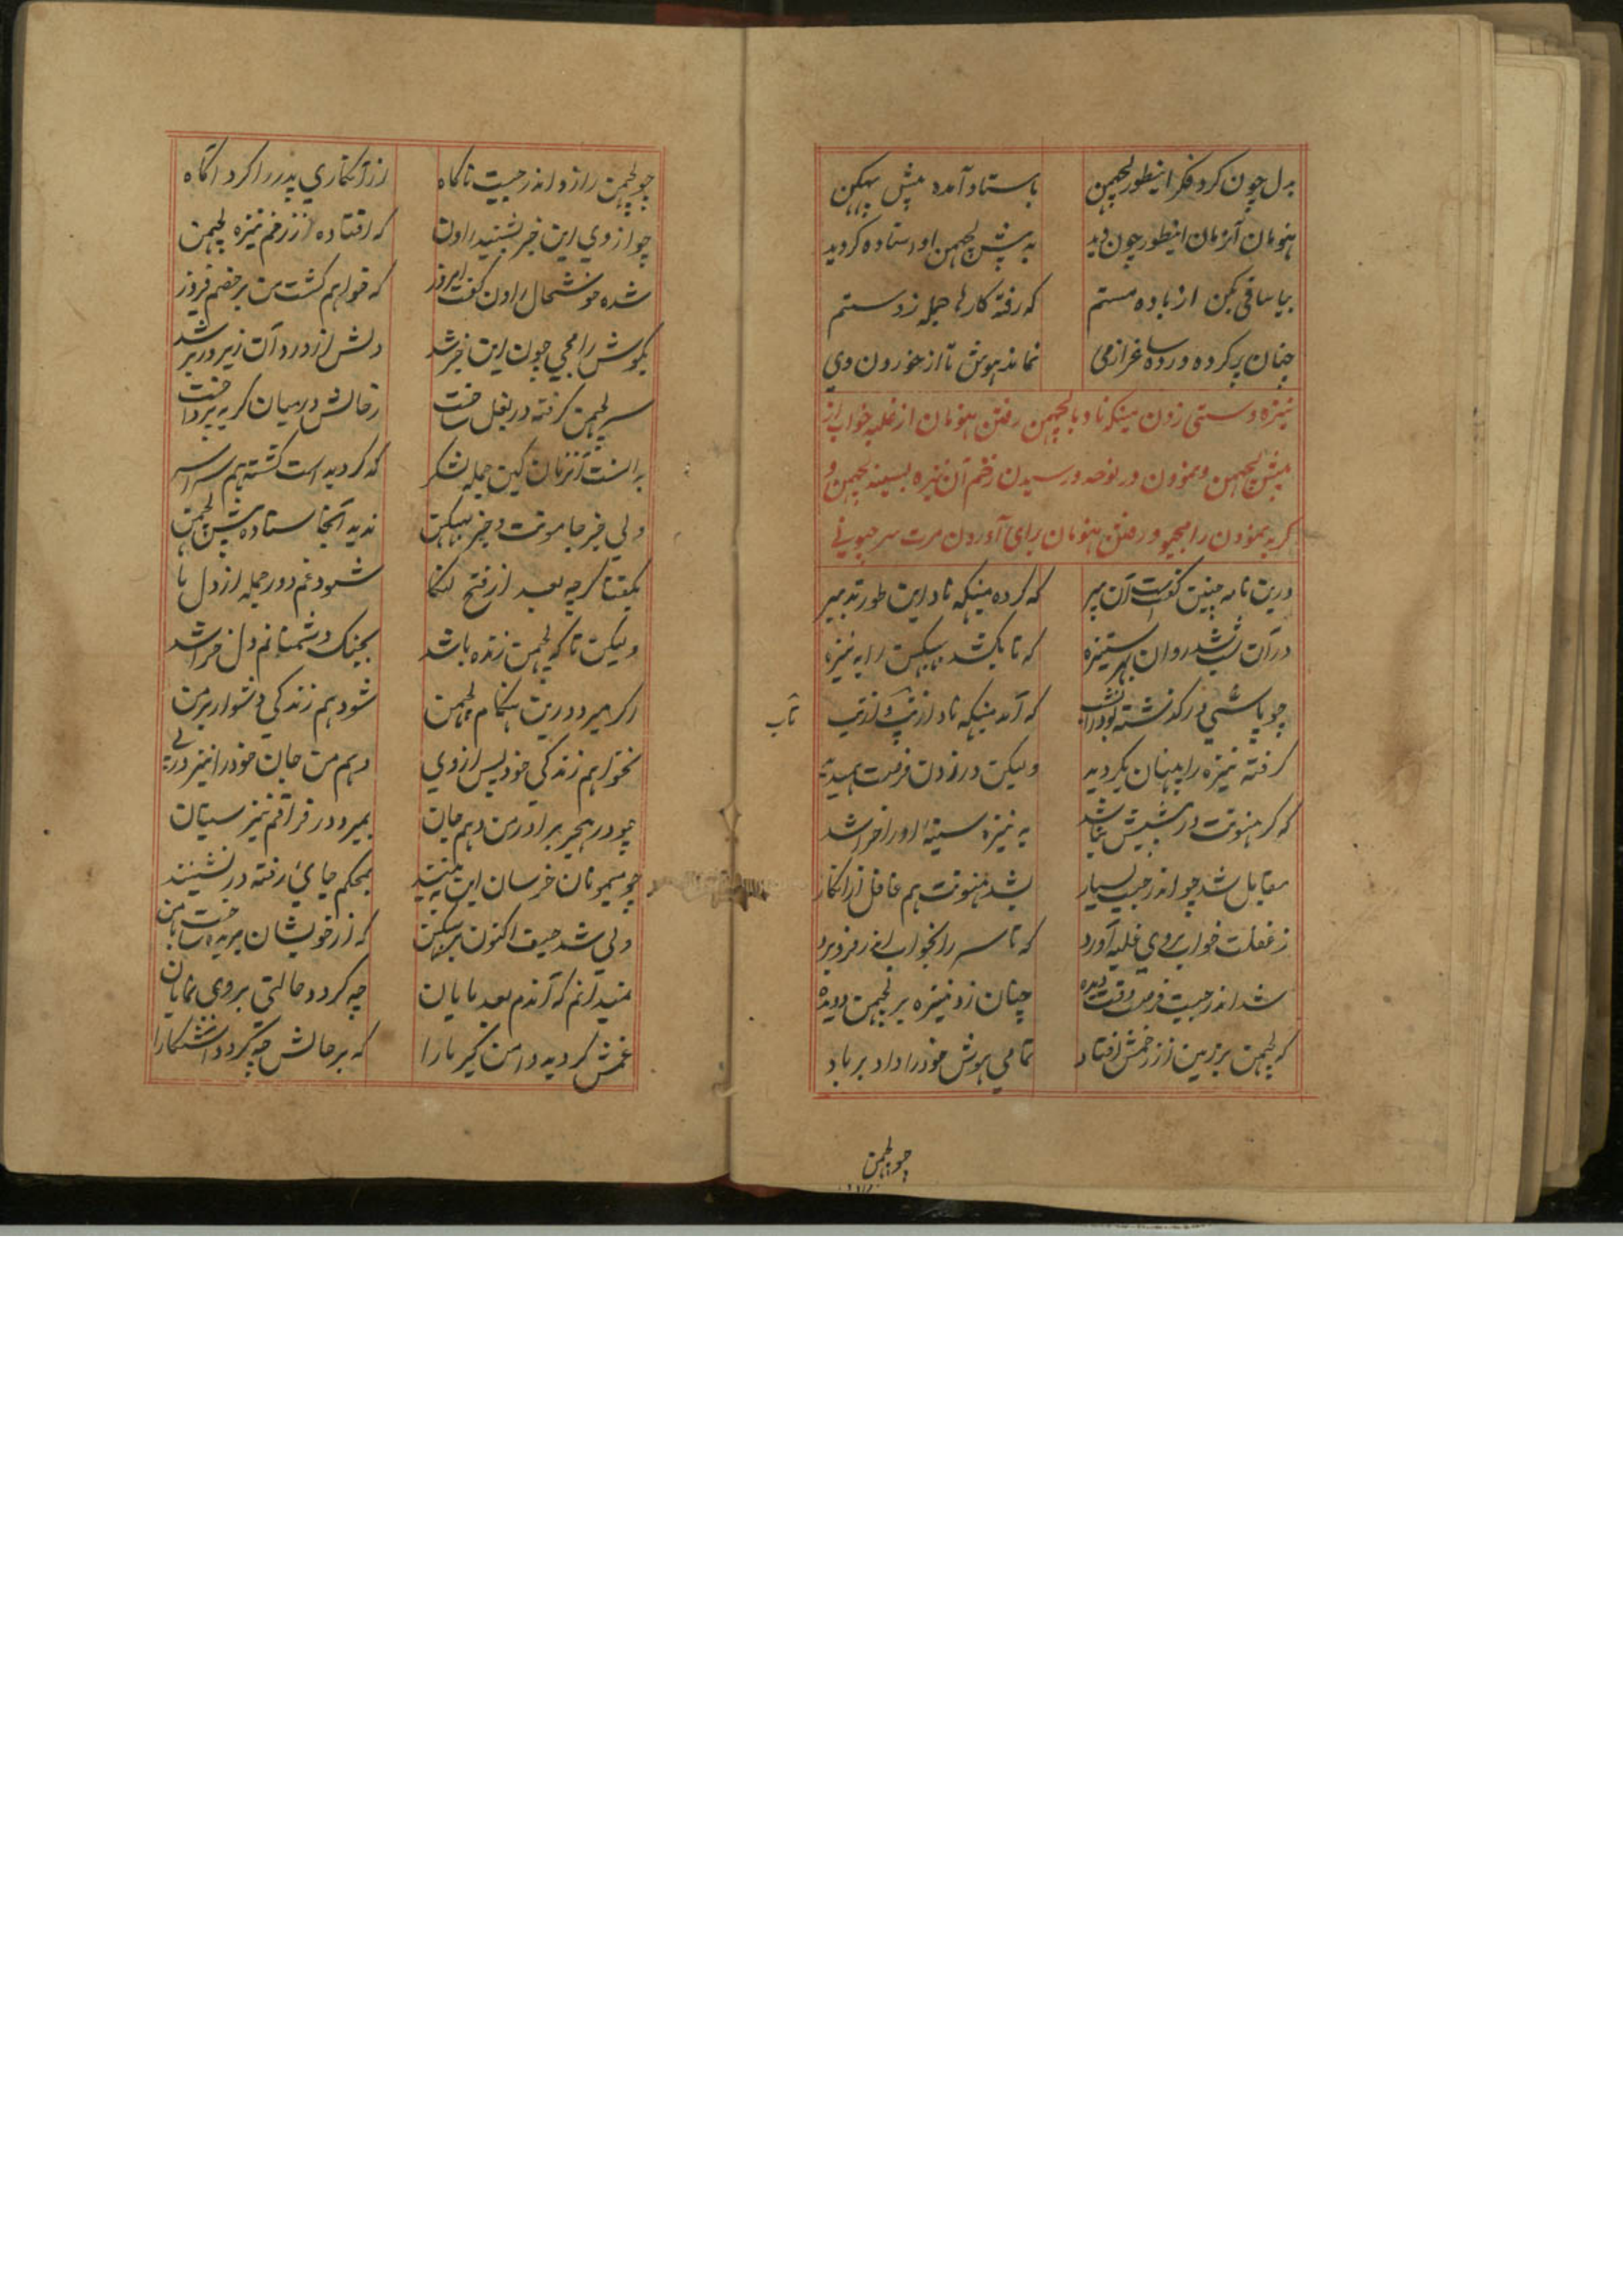 بدل چون کرد فکر اینطور لچهمن باستاد آمده پیش ببهیکن
هنومان آنزمان اینطور چون دید به پیش لچهمن او استاده کردید
بیا ساقی بکن از باده مستم که رفته کارها جمله ز دستم
چنان پر کرده در ده ساغر از می نماند هوش تا از خوردن وی
نیزه دستی زدن میکهناد با لچهمن رفتن هنومان از غلبه خواب از
پیش لچهمن و نمودن در نوحه و رسیدن زخم آن نیزه بسینه لچهمن و
کریه نمودن رامچیو و رفتن هنومان برای آوردن مرت سرجیونی
درین نامه چنین گفتست آن پیر که کرده میکهه ناد این طور تدبیر
در آن شب شد روان بهر ستیزه که تا بکشد ببیکن را به نیزه
چو پاسی در گذشته بود از شب که آمد میکهه ناد از تپ و از تب
تاب
گرفته نیزه را پنهان بگردید ولیکن در زدن فرصت همیدید
که گر هنونت در پیشش نباشد به نیزه سینه او را خراشد
مقابل شد چو اندر جیب بسیار بشد هنونت هم غافل از انکار
ز غفلت خواب بر وی غلبه آورد که تا سر را بخواب اندر فرو برد
شد اندر جیب فرصت وقت دیده چنان زد نیزه بر لچهمن دویده
که لچهمن بر زمین از زخمش افتاد تمامی هوش خود را داد بر باد
چو لچهمن
چو لچهمن را زد اندر جیب ناکاه از آنکاری پدر را کرد آگاه
چو از وی این خبر بشنید راون که افتاده از زخم نیزه لچهمن
شده خوشحال راون گفت امروز که خواهم گشت من بر خصم فیروز
بگوش رامچی چون این خبر شد دلش از درد آن زیر و زبر شد
سر لچهمن گرفته در بغل ساخت زحالش درمیان گریه پرداخت
بدانست آنزمان کین جمله لشکر که گردیدست کشته هم سراسر
ولی جز جامونت و جز ببهیکن ندید آنجا ستاده پیش لچهمن
بگفتا گرچه بعد از فتح لنکا شود غم دور جمله از دل ما
ولیکن تا که لچهمن زنده باشد بجنگ دشمنانم دل خراشد
اگر میرد درین هنگام لچهمن شود هم زندگی دشوار بر من
نخواهم زندگی خود پس از وی دهم من جان خود را نیز در پی
چو در هجر برادر من دهم جان بمیرد در فراقم نیز سیتان
چو میمونان خرسان این به بینند بمحکم جای رفته در نشینند
ولی شد حیف اکنون بر ببیکن که از خویشان بریده ساخت با من
نمیدانم که آندم بعد پایان چه گردد حالتی بر وی نمایان
غمش گردیده دامن گیر ما را که بر حالش چه گردد آشکارا